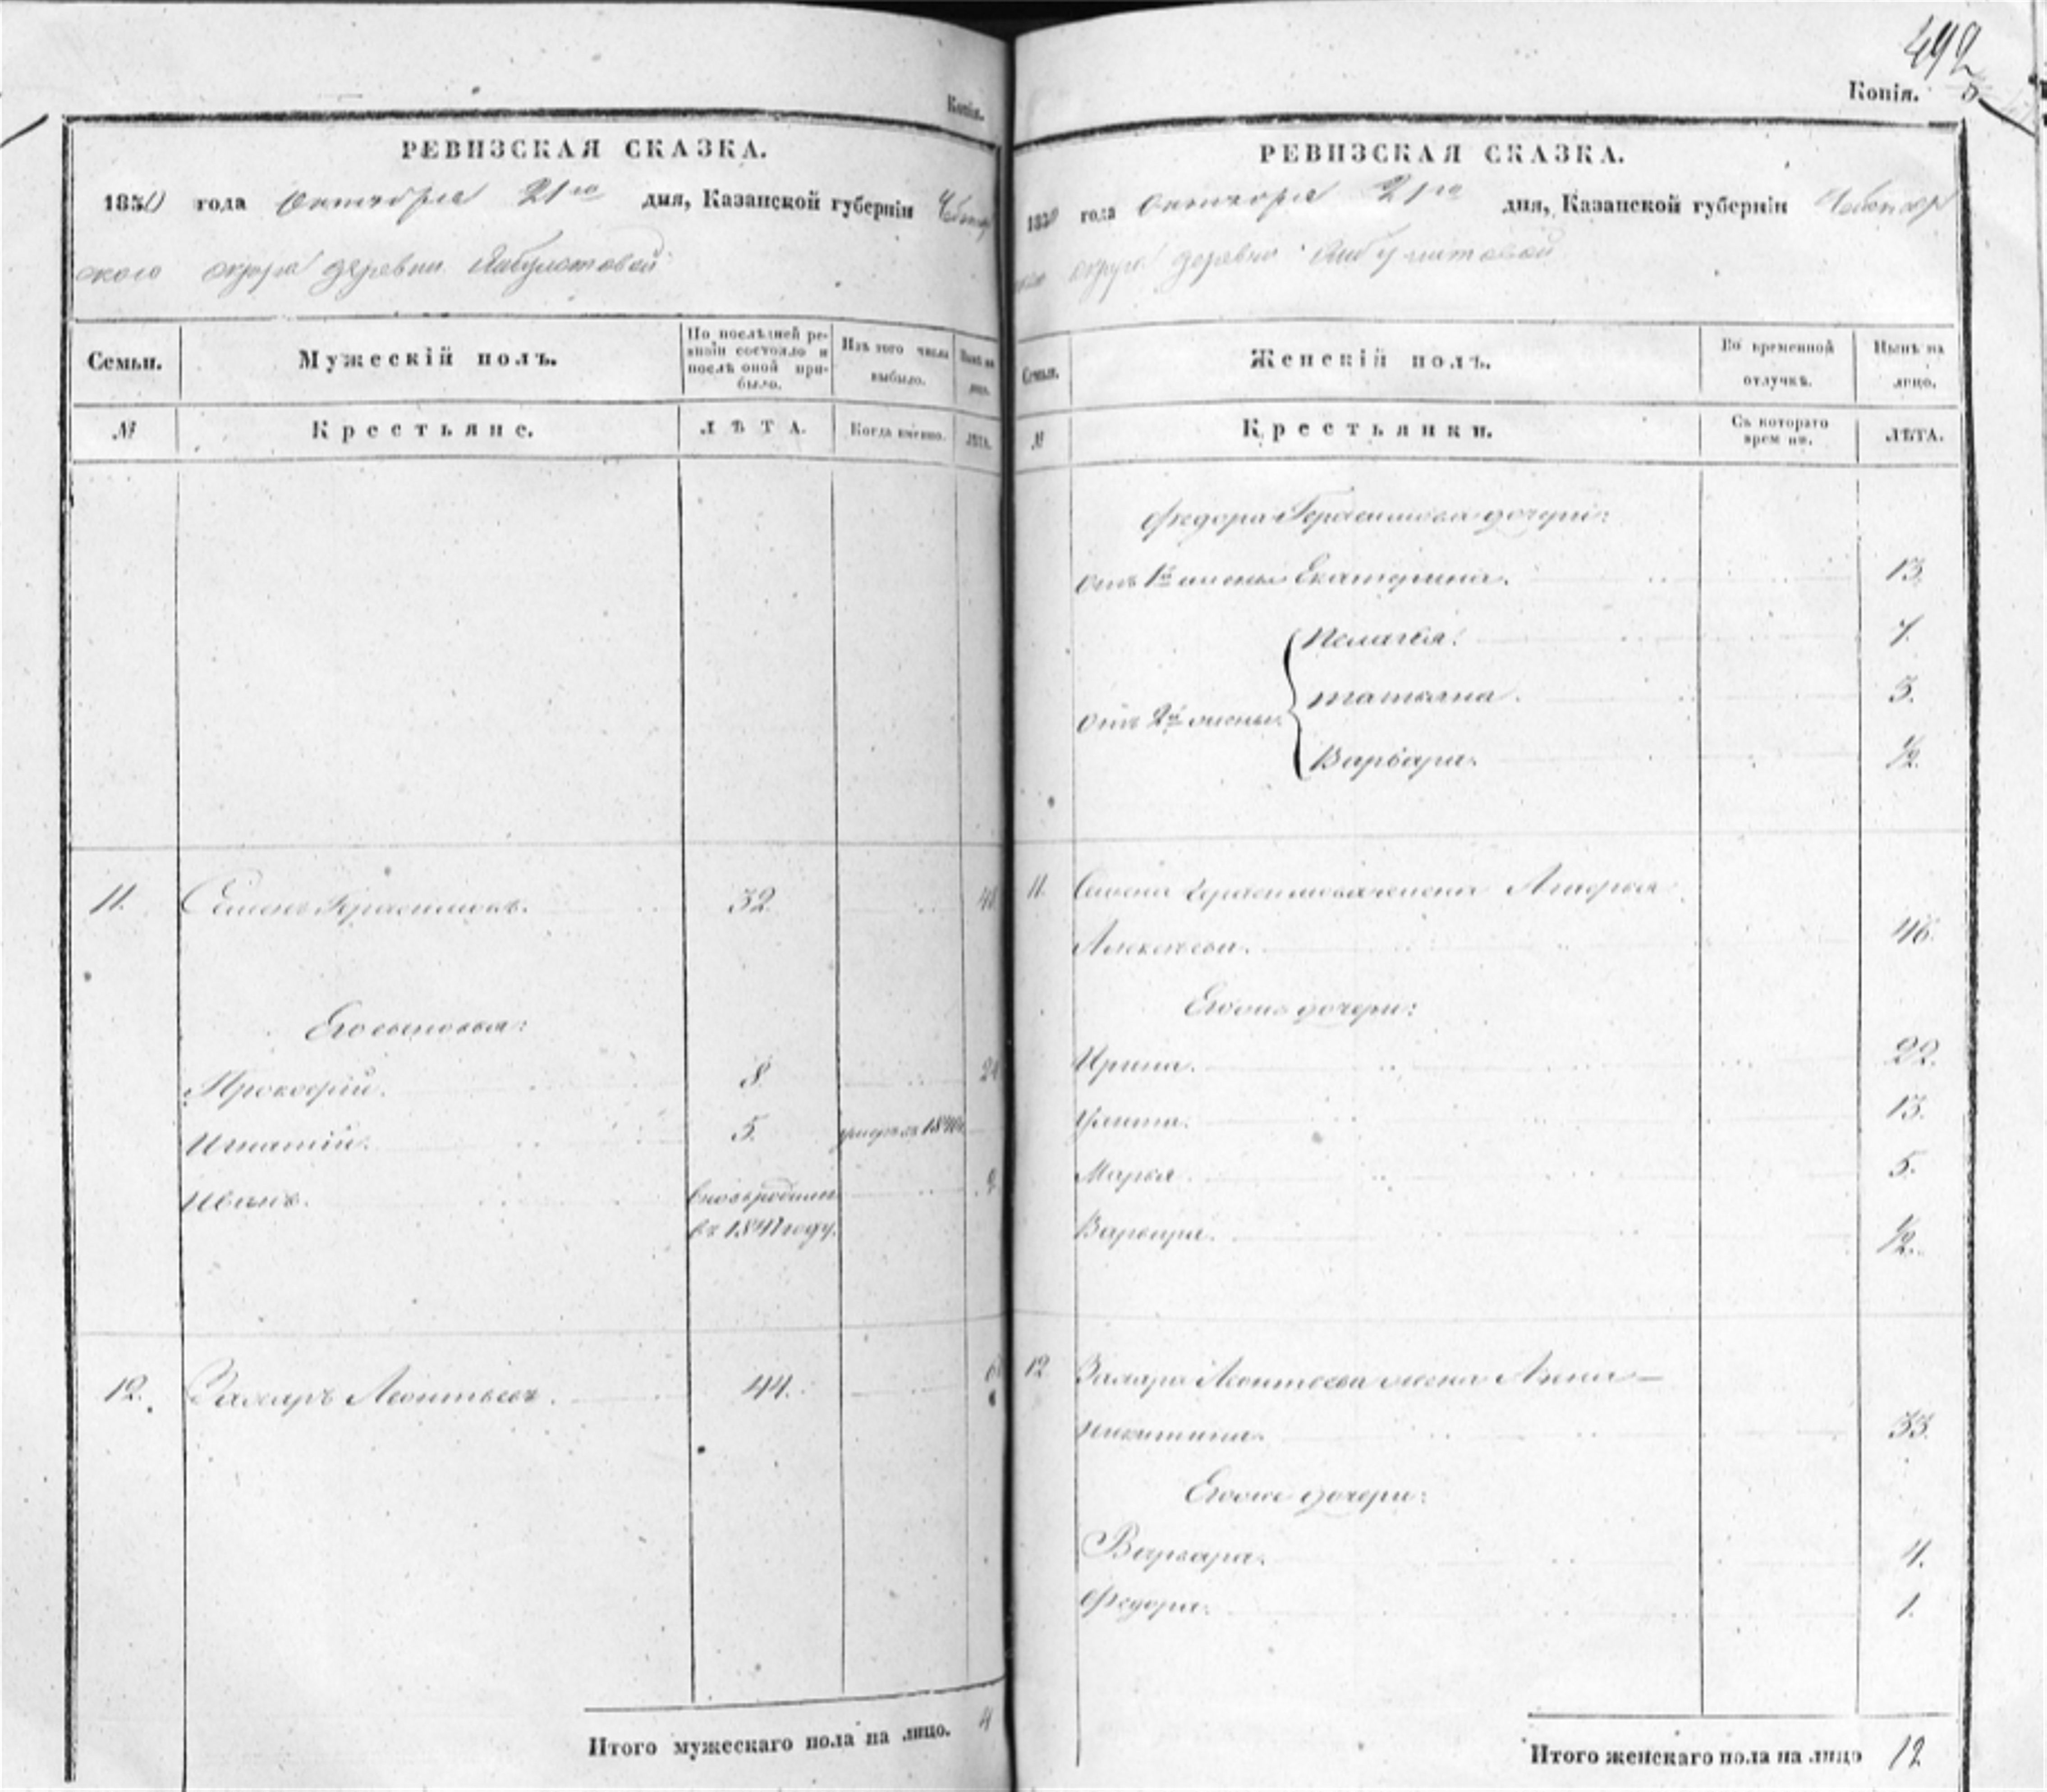 Копія.
РЕВИЗСКАЯ СКАЗКА.
1850 года Октября 21го дня, Казанской губерніи Чебокса
ского округа деревни
Семьи.
Мужескій полъ.
По послѣдней ре-
визіи состояло и
послѣ оной при-
было.
Изъ того числа
выбыло.
Нынѣ на
лицо.
№
Крестьяне.
ЛѢТА.
Когда именно.
ЛѢТА.
11. Семенъ Герасимовъ. 32.
Его сыновья:
Прокофій. 8.
Игнатій. 5. умеръ въ
Иванъ.
въ 1841 году. 9
12. Захаръ Леонтьевъ. 44.
Итого мужескаго пола на лицо. 4
492
Копія.
РЕВИЗСКАЯ СКАЗКА.
1850 года Октября 21го дня, Казанской губерніи Чебоксар
ского округа деревни
Семьи.
Женскій полъ.
Во временной
отлучкѣ.
Нынѣ на
лицо.
№
Крестьянки.
Съ котораго
времени.
ЛѢТА.
Федора Герасимова дочери:
Отъ 1й жены Екатерина. 13.
Пелагея. 7.
Отъ 2й жены Татьяна. 3.
Варвара. 1/2.
11. Семена Герасимова жена
Алексѣева. 46.
Его же дочери:
Ирина. 22.
Улита. 13.
Марья. 5.
Варвара. 1/2.
12 Захара Леонтьева жена Анна
Никитина. 33.
Его же дочери:
Варвара. 4.
Федора. 1.
Итого женскаго пола на лицо 12